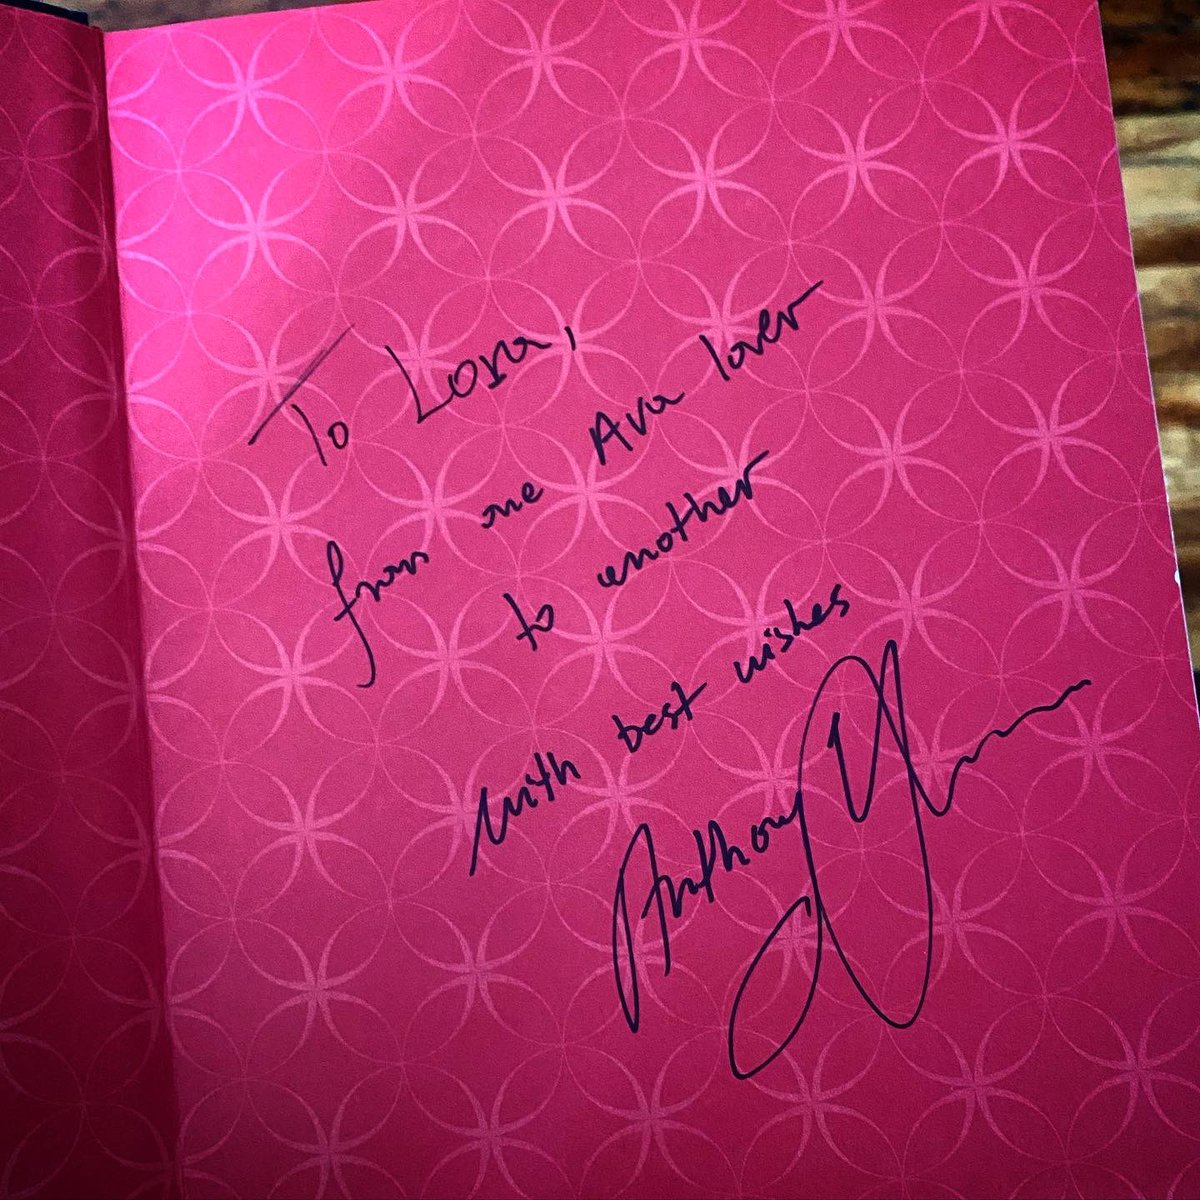 To Lora,
from one Ava lover
to another
with best wishes
Anthony